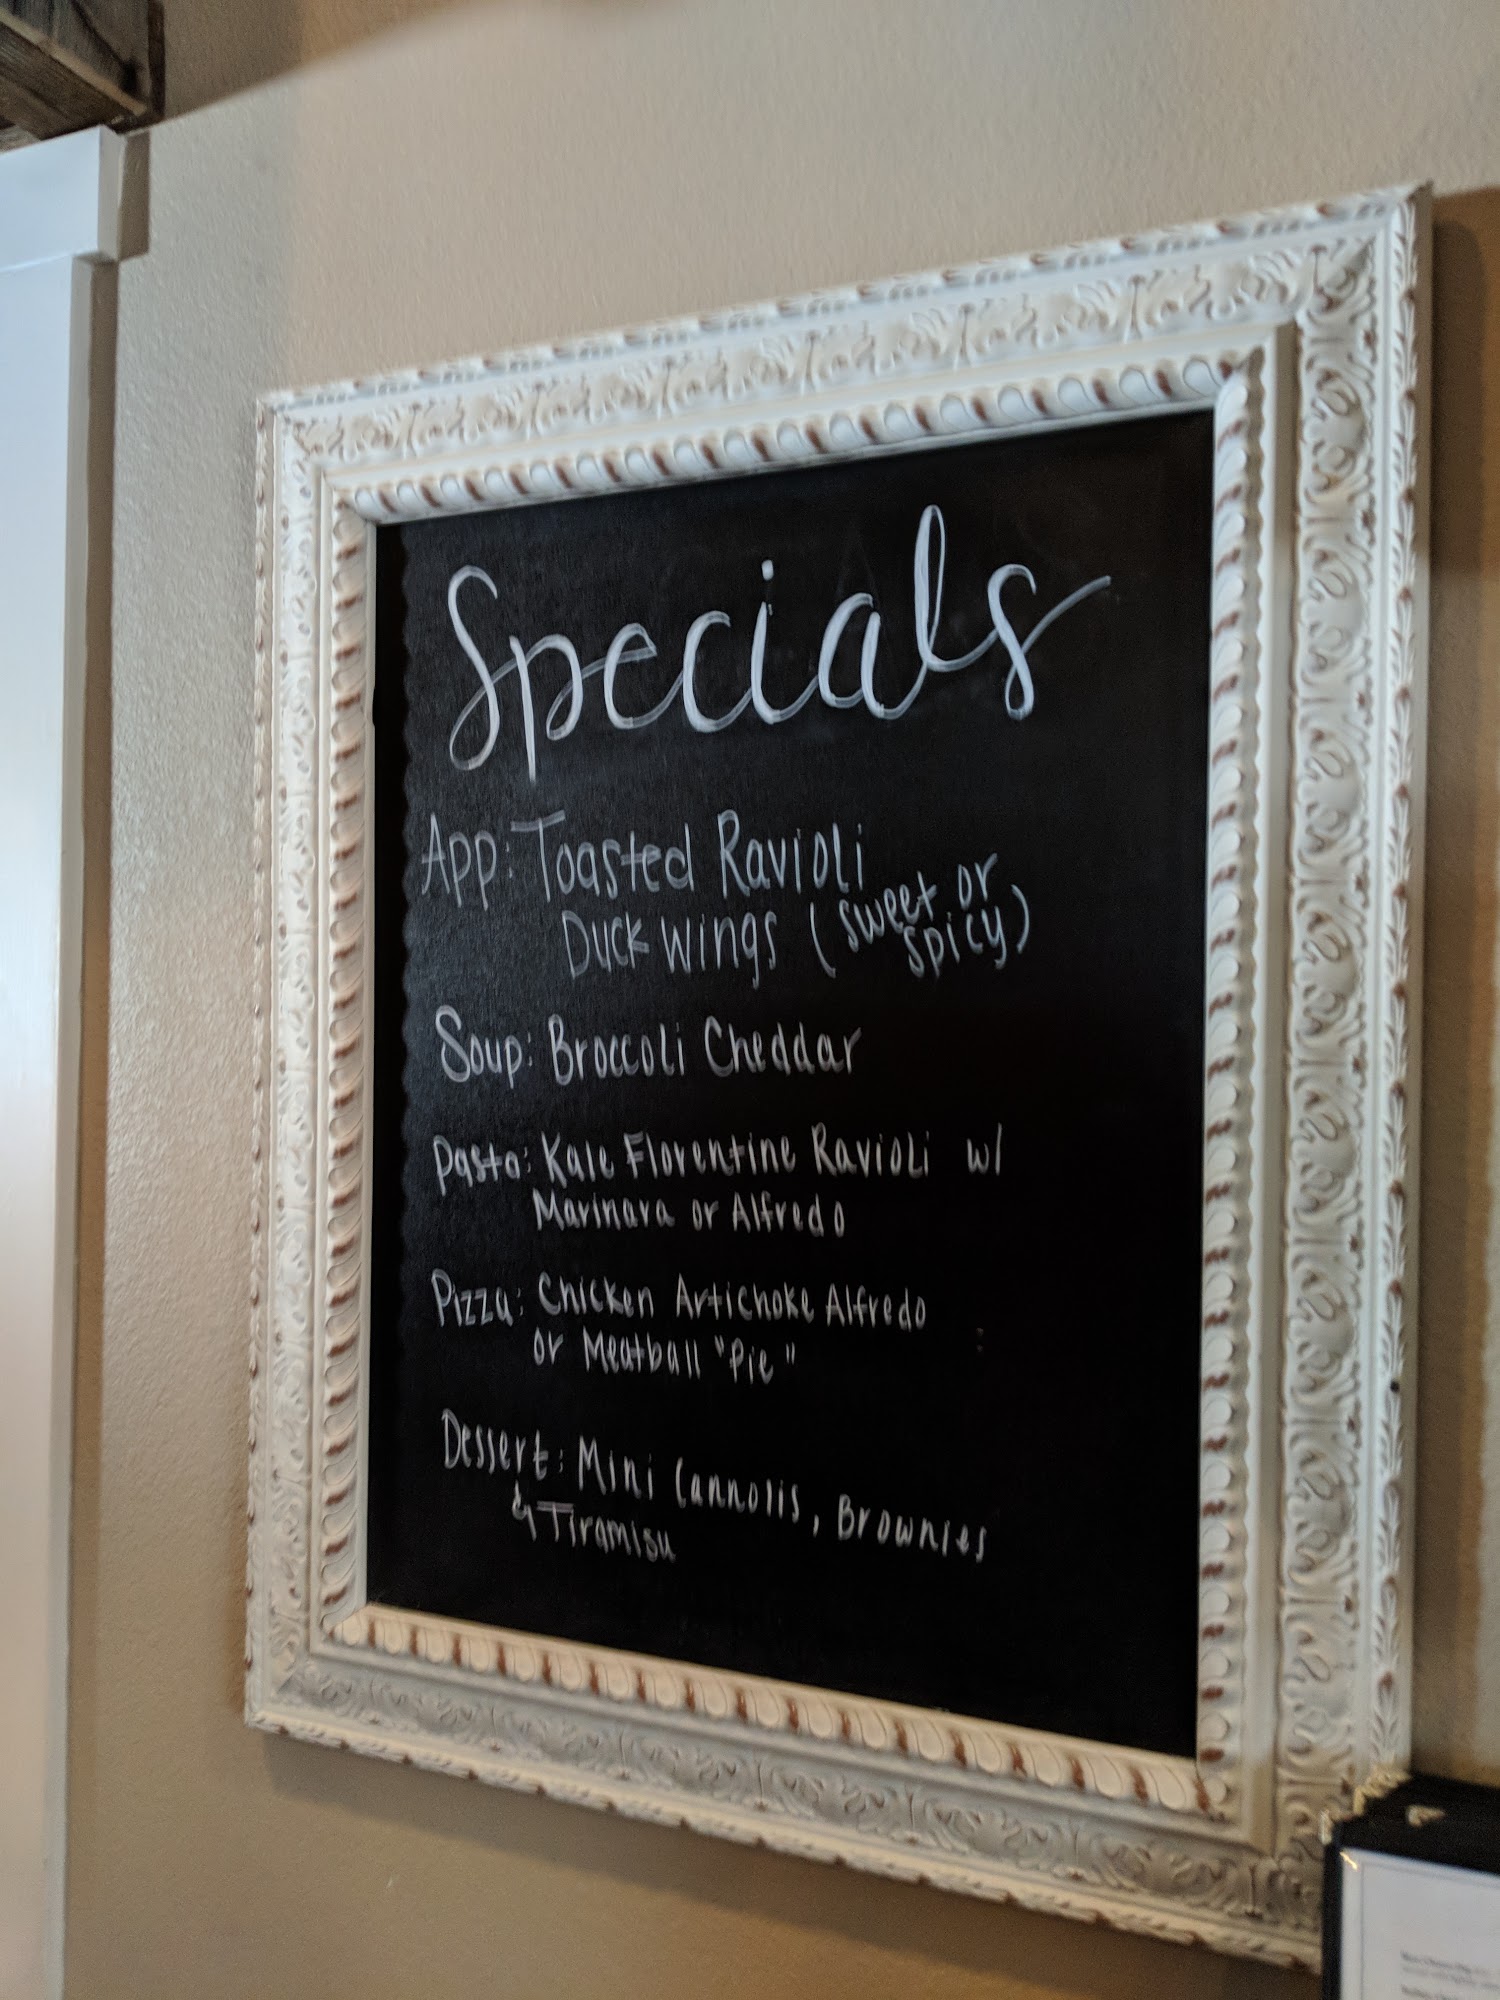 Specials
App: Toasted Ravioli
Duck wings (sweet or
spicy)
Soup: Broccoli Cheddar
Pasta: Kale Florentine Ravioli w/
Marinara or Alfredo
Pizza: Chicken Artichoke Alfredo
or Meatball "Pie"
Dessert: Mini Cannolis, Brownies
& Tiramisu